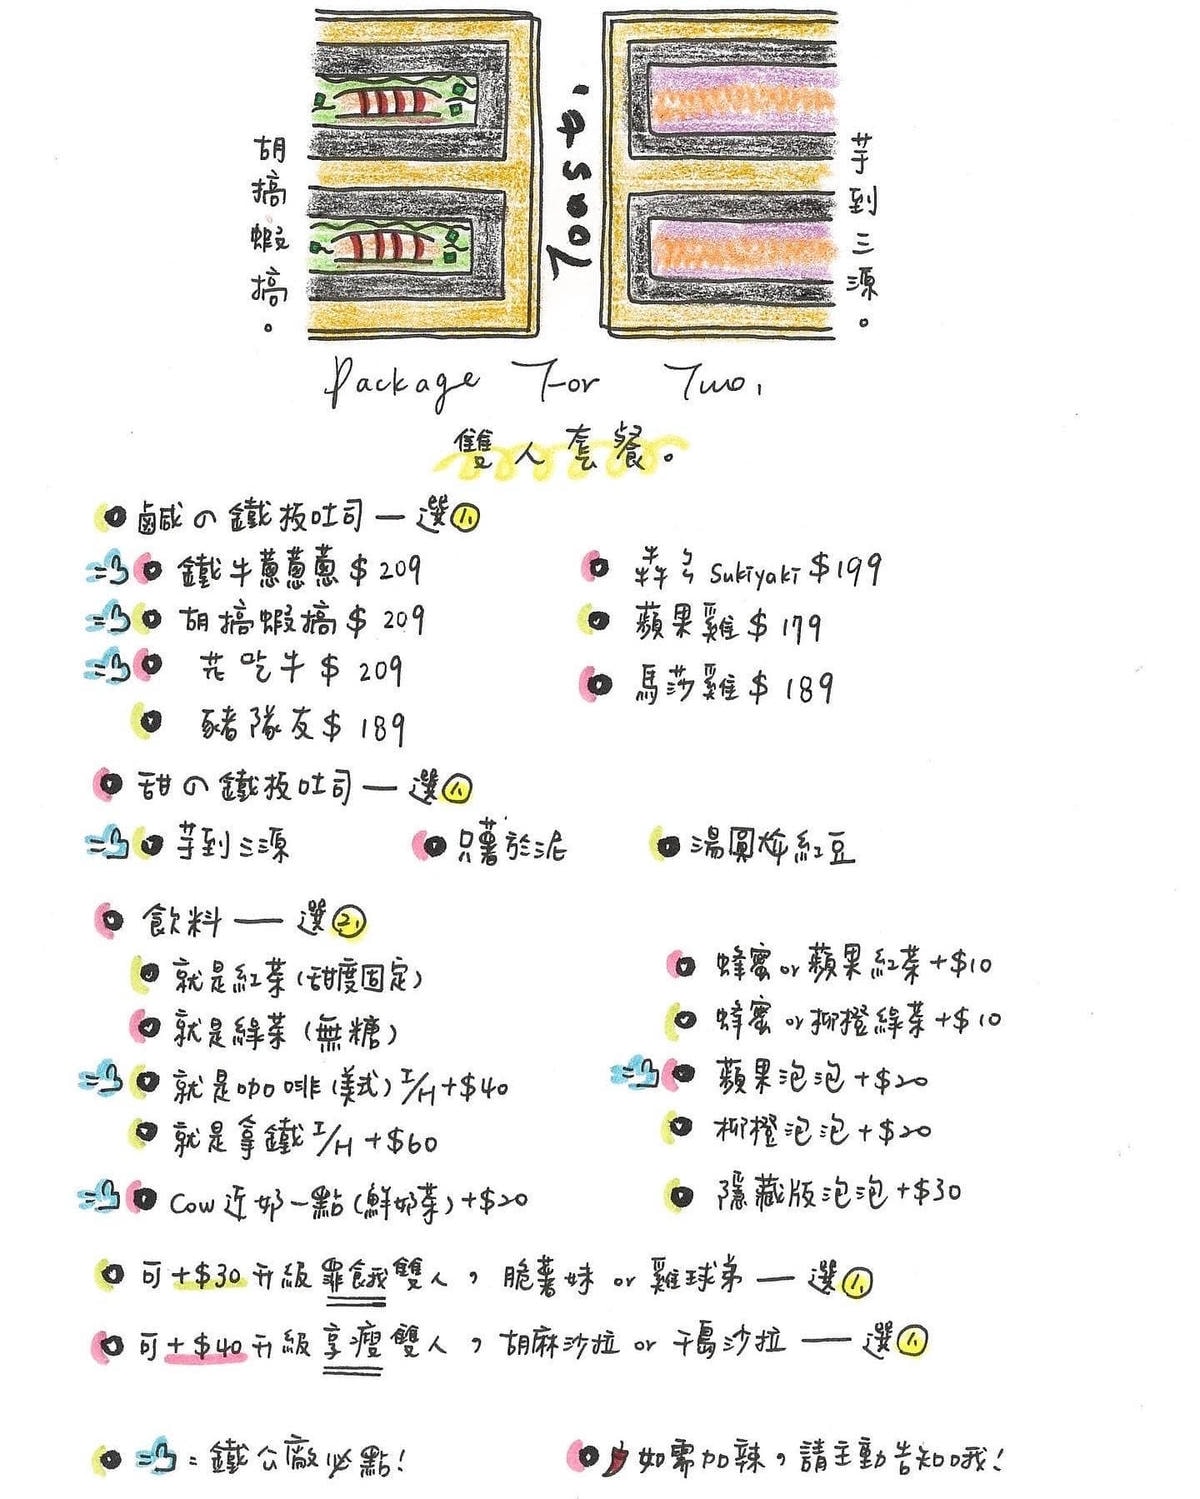 胡搞蝦搞。
Toast.
芋到三源。
Package For Two.
雙人套餐。
鹹の鐵板吐司一選1.
鐵牛蔥蔥蔥$209
胡搞蝦搞$209
花吃牛$209
豬隊友$189
犇ㄋSukiyaki$199
蘋果雞$179
馬莎雞$189
甜の鐵板吐司一選1.
芋到三源
只薯於泥
湯圓燉紅豆
飲料一選2.
就是紅茶(甜度固定)
就是綠茶(無糖)
就是咖啡(美式)I/H+$40
就是拿鐵I/H+$60
Cow近奶一點(鮮奶茶)+$20
蜂蜜or蘋果紅茶+$10
蜂蜜or柳橙綠茶+$10
蘋果泡泡+$20
柳橙泡泡+$20
隱藏版泡泡+$30
可+$30升級罪餓雙人,脆薯妹or雞球弟一選1.
可+$40升級享瘦雙人,胡麻沙拉or千島沙拉一選1.
=鐵公廠必點!
如需加辣,請主動告知哦!